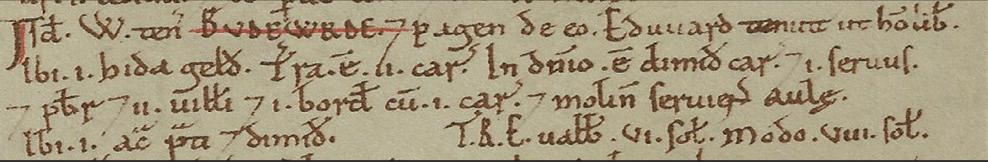 Isd̃. W. teñ BVDEWRDE. ⁊ pagen de eo. Eduuard tenuit ut hõ lib̃.
Ibi .i. hida geld̃. Tr̃a. ẽ .ii. car̃. In dñio .ẽ dimid̃ car̃. ⁊ .i. seruus.
⁊ pb̃r ⁊ .ii. uilłi ⁊ .i. bord̃ cũ .i. car̃. ⁊ molin̄ seruieñs aulę.
Ibi .i. ac̃ p̃ti ⁊ dimid̃. T.R.E. ualb̃ .vi. sol̃. Modo .viii. sol̃.